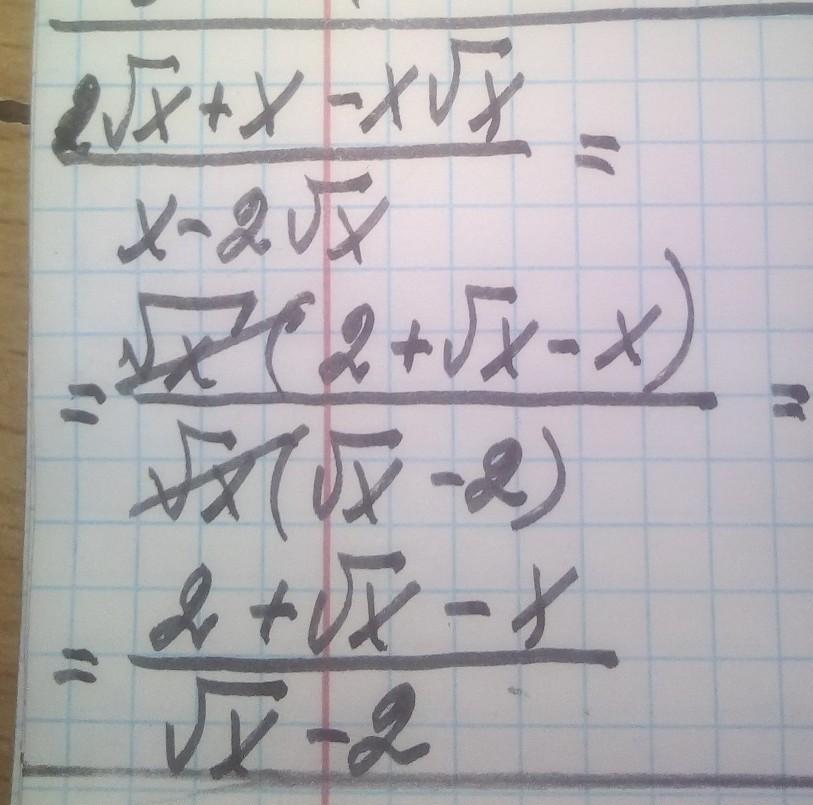 2√x + x - x√x
=
x - 2√x
= √x (2 + √x - x) =
√x (√x - 2)
= 2 + √x - x
√x - 2